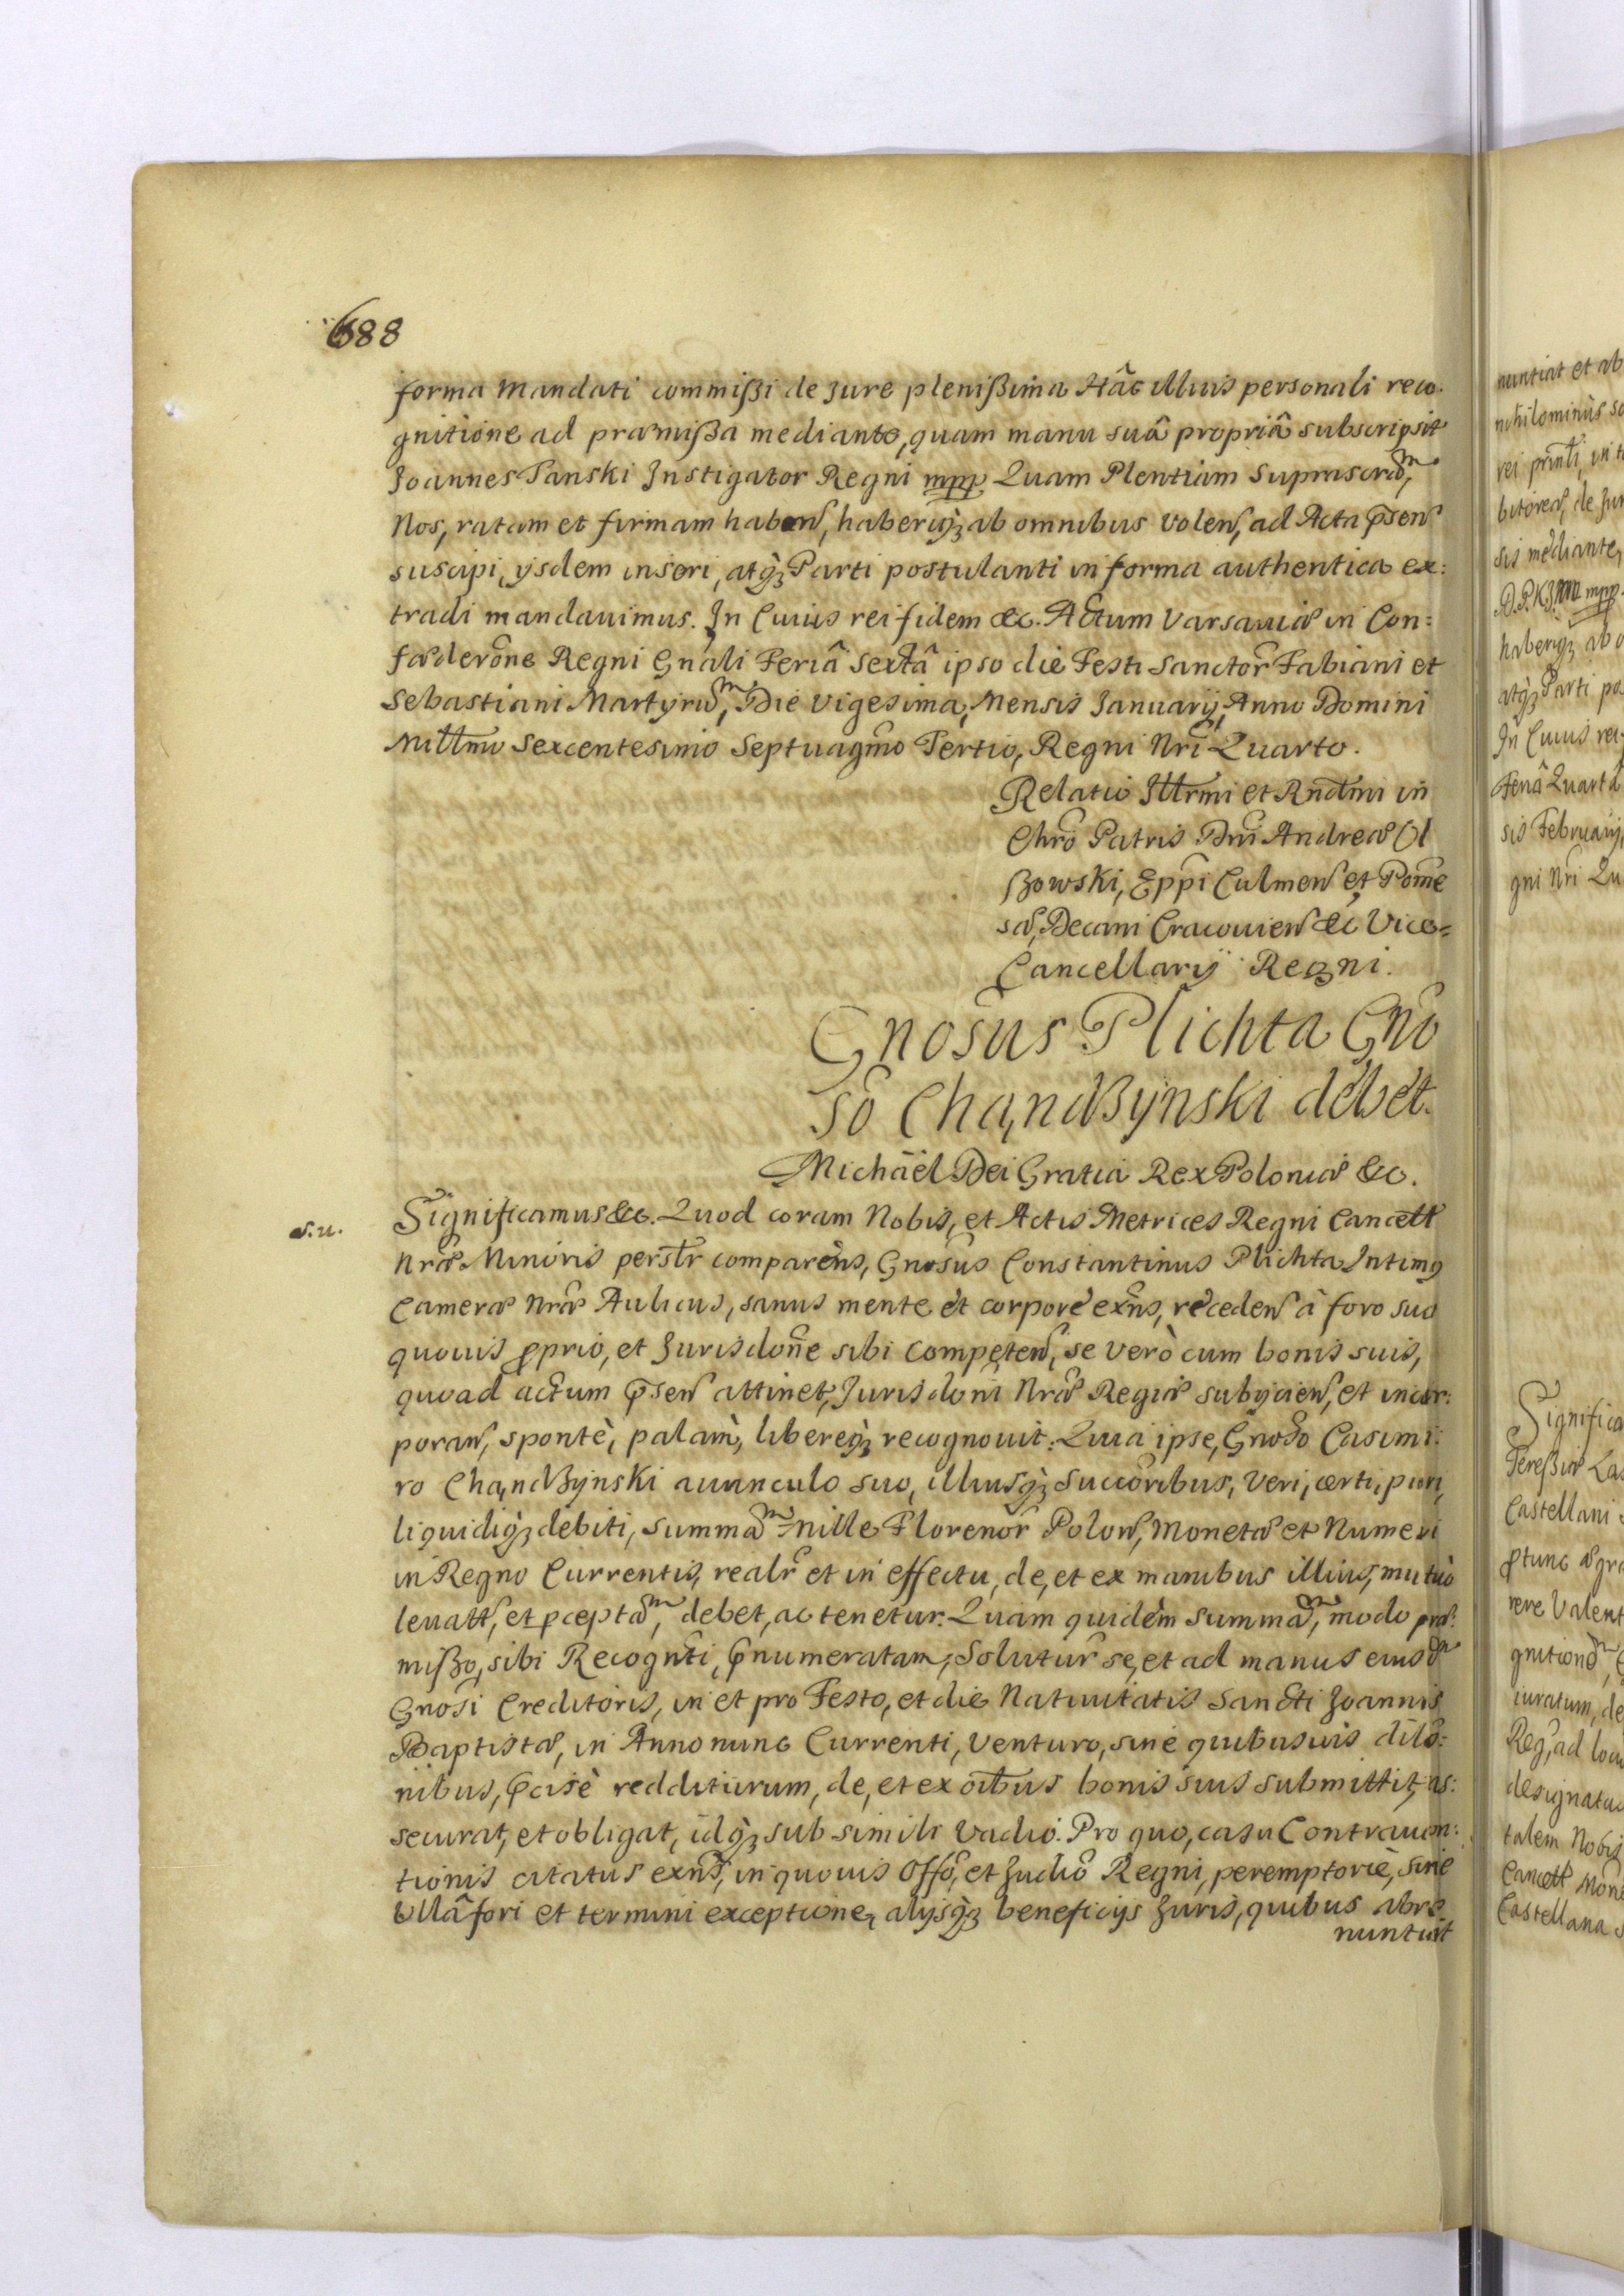 688
forma mandati commißi de Jure plenißima Hâc illius personali reco:
gnitione ad præmißa mediante, quam manu suâ propriâ subscripsit
Joannes Tanski Instigator Regni mpp Quam Plentiam suprascrām,
Nos, ratam et firmam habens, haberiq3 ab omnibus volens, ad Acta p̄sens
suscipi, ijsdem inseri, atq3 Parti postulanti in forma authentica ex:
tradi mandauimus. In Cuius rei fidem &c. Actum Varsauiæ in Con:
fœderōne Regni Gnāli Feriâ sextâ ipso die Festi Sanctor̄ Fabiani et
Sebastiani Martyrum, Die vigesima, Mensis Januarij, Anno Domini
Milltmo Sexcentesimo Septuagmo Tertio, Regni Nrī Quarto.
Relatio Illrmi et Rndmi in
Chrō Patris Dnī Andreæ Ol
ßowski, Eppī Culmens et Pome
sæ, Decani Cracouiens &c Vice=
Cancellarij Regni.
Gnosus Plichta Gno
so Cha̧ndßynski debet.
Michaël Dei Gratia Rex Poloniæ &c.
s.u.
Significamus &c. Quod coram Nobis, et Actis Metrices Regni Cancell
Nræ Minoris perslr comparens, Gnosus Constantinus Plichta Intimg
Cameræ Nræ Aulicus, sanus mente et corpore exn̄s, recedens â foro suo
quouis proprio, et Jurisdōne sibi competens, se verò cum bonis suis,
quoad actum p̄sens attinet, Jurisdoni Nræ Regiæ subijciens, et incor:
porans, spontè, palam, libereq3 recognouit: Quia ipse, Gnoso Casimi:
ro Cha̧ndßynski auunculo suo, illiusq3 Succōribus, veri, certi, puri,
liquidiq3 debiti, summam mille Florenor̄ Polons, Monetæ et Numeri
in Regno Currentis, realr̄ et in effectu, de, et ex manibus illius, mutuò
leuatt, et pceptam, debet, ac tenetur. Quam quidèm summam, modo præ:
mißo, sibi Recognti, p̄numeratam, Soluturr̄ se, et ad manus eiusdm
Gnosi Creditoris, in et pro Festo, et die Natiuitatis Sancti Joannis
Baptistæ, in Anno nunc Currenti, venturo, sine quibusuis dilō:
nibus, p̄cisè redditurum, de, et ex oībus bonis suis submittit, as:
securat, et obligat, idq3 sub simili vadio. Pro quo, casu Contrauen:
tionis citatus exns, in quouis Offō, et Judiō Regni, peremptoriè, sine
Ullâ fori et termini exceptione, alijsq3 beneficijs Juris, quibus abre
nuntiat
nuntiat et ab
nihilominùs so
rei prnti, in t
bitoreæ, de Jur
sis mediante,
mpp.
haberiq3 ab o
atq3 Parti po
In Cuius rei
Feriâ Quartâ
sis Februarij,
gni Nrī Qu
Significa
Tereßiæ Las
Castellani
ptunc ægra
rere valent
gnitionem,
iuratum, de
Reg, ad locu
designatus
talem Nobis
Cancell
Castellana s